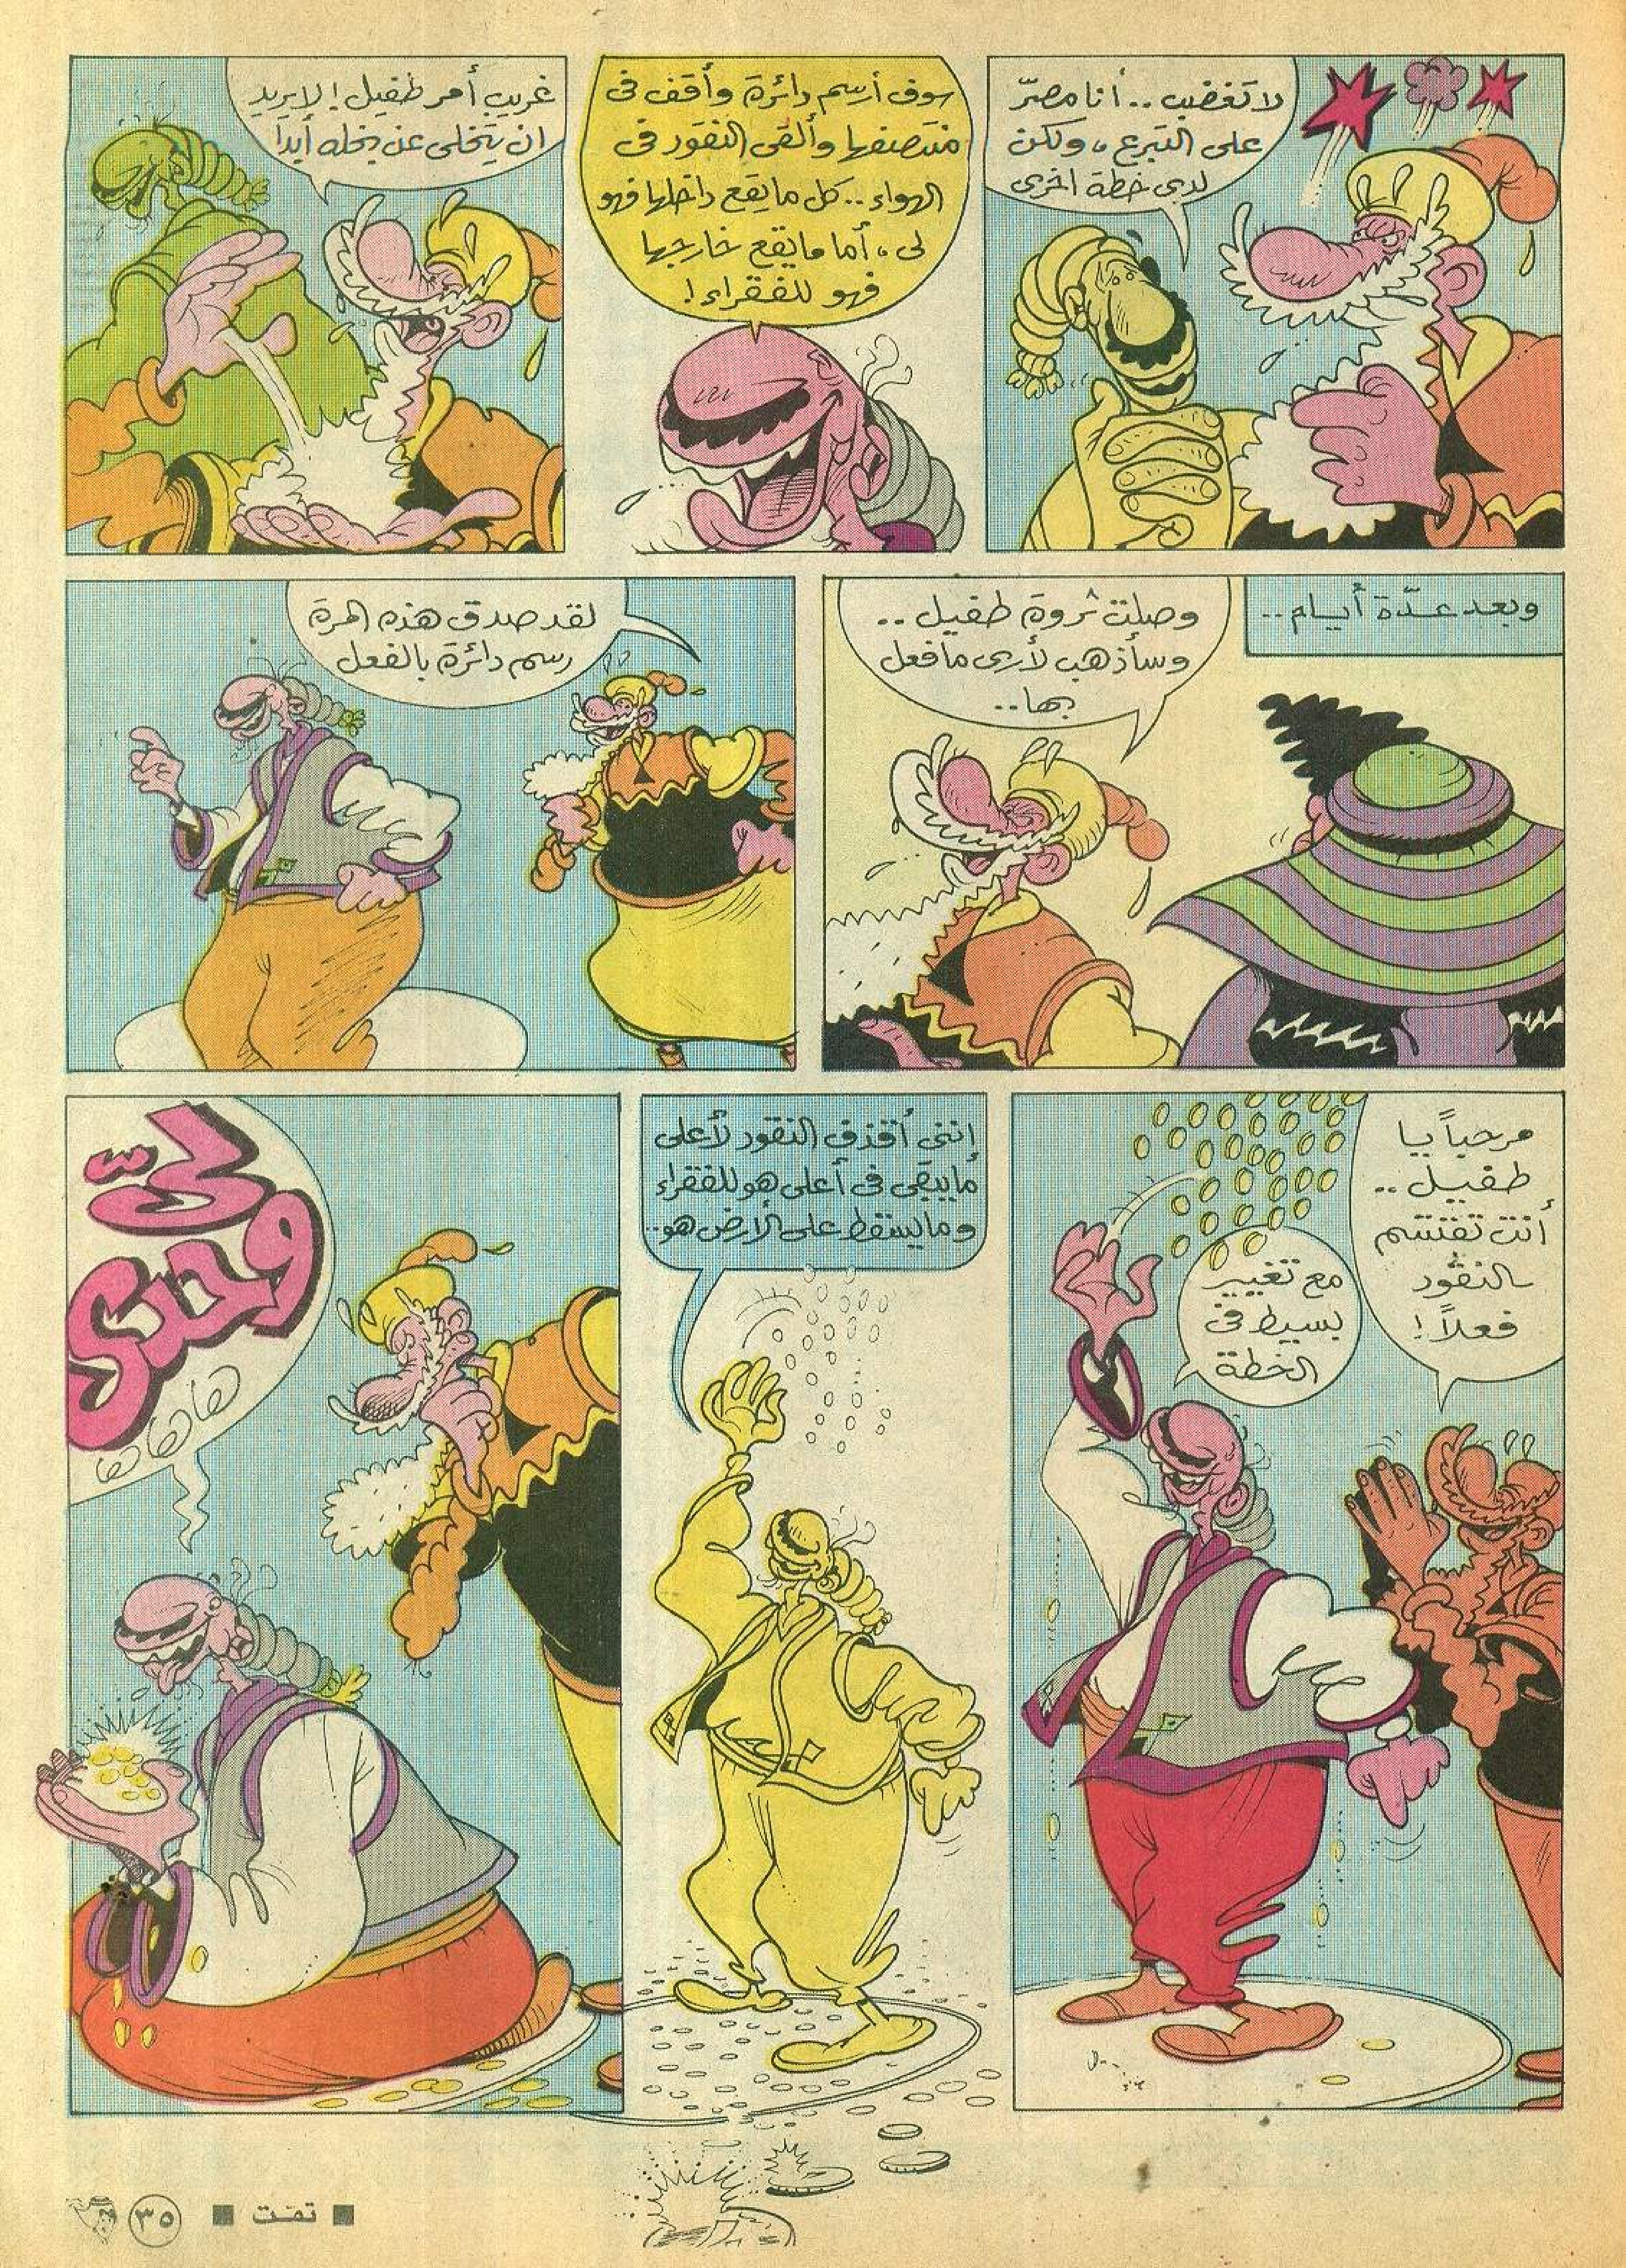 لا تغضب.. أنا مصرّ
على التبرع، ولكن
لدى خطة اخرى
سوف أرسم دائرة وأقف فى
منتصفها وألقى النقود فى
الهواء.. كل ما يقع داخلها فهو
لى، أما ما يقع خارجها
فهو للفقراء!
غريب أمر طفيل! لا يريد
ان يتخلى عن بخله أبدا
وبعد عدّة أيام..
وصلت ثروة طفيل..
وسأذهب لأرى ما فعل
بها..
لقد صدق هذه المرة
رسم دائرة بالفعل
مرحباً يا
طفيل..
أنت تقتسم
النقود
فعلاً!
مع تغيير
بسيط فى
الخطة
إننى أقذف النقود لأعلى
ما يبقى فى أعلى هو للفقراء
وما يسقط على الأرض هو..
لىّ
وحدى
هاهاها
■ تمت ■
٣٥